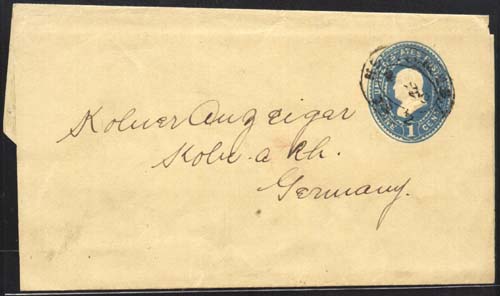 Kolner Anzeigar
Koln. a Rh.
Germany.
UNITED STATES
1
CENT